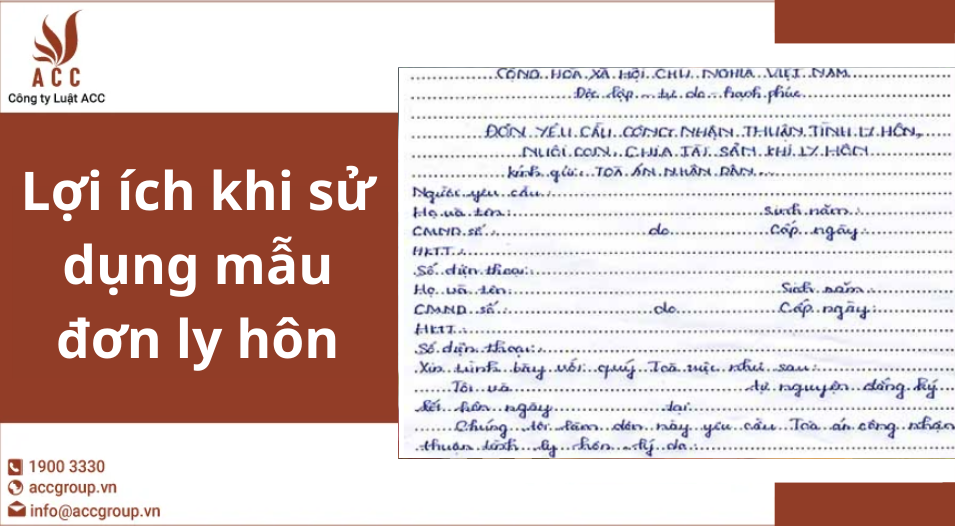 ACC
Công ty Luật ACC
Lợi ích khi sử
dụng mẫu
đơn ly hôn
1900 3330
accgroup.vn
info@accgroup.vn
CỘNG HOÀ XÃ HỘI CHỦ NGHĨA VIỆT NAM
Độc lập - tự do - hạnh phúc
ĐƠN YÊU CẦU CÔNG NHẬN THUẬN TÌNH LY HÔN,
NUÔI CON, CHIA TÀI SẢN KHI LY HÔN
Kính gửi: TOÀ ÁN NHÂN DÂN
Người yêu cầu:
Họ và tên: Sinh năm:
CMND số: do Cấp ngày
HKTT:
Số điện thoại:
Họ và tên: Sinh năm:
CMND số: do Cấp ngày:
HKTT:
Số điện thoại:
Xin trình bày với quý Toà việc như sau:
Tôi và tự nguyện đăng ký
kết hôn ngày tại
Chúng tôi làm đơn này yêu cầu Toà án công nhận
thuận tình ly hôn lý do: